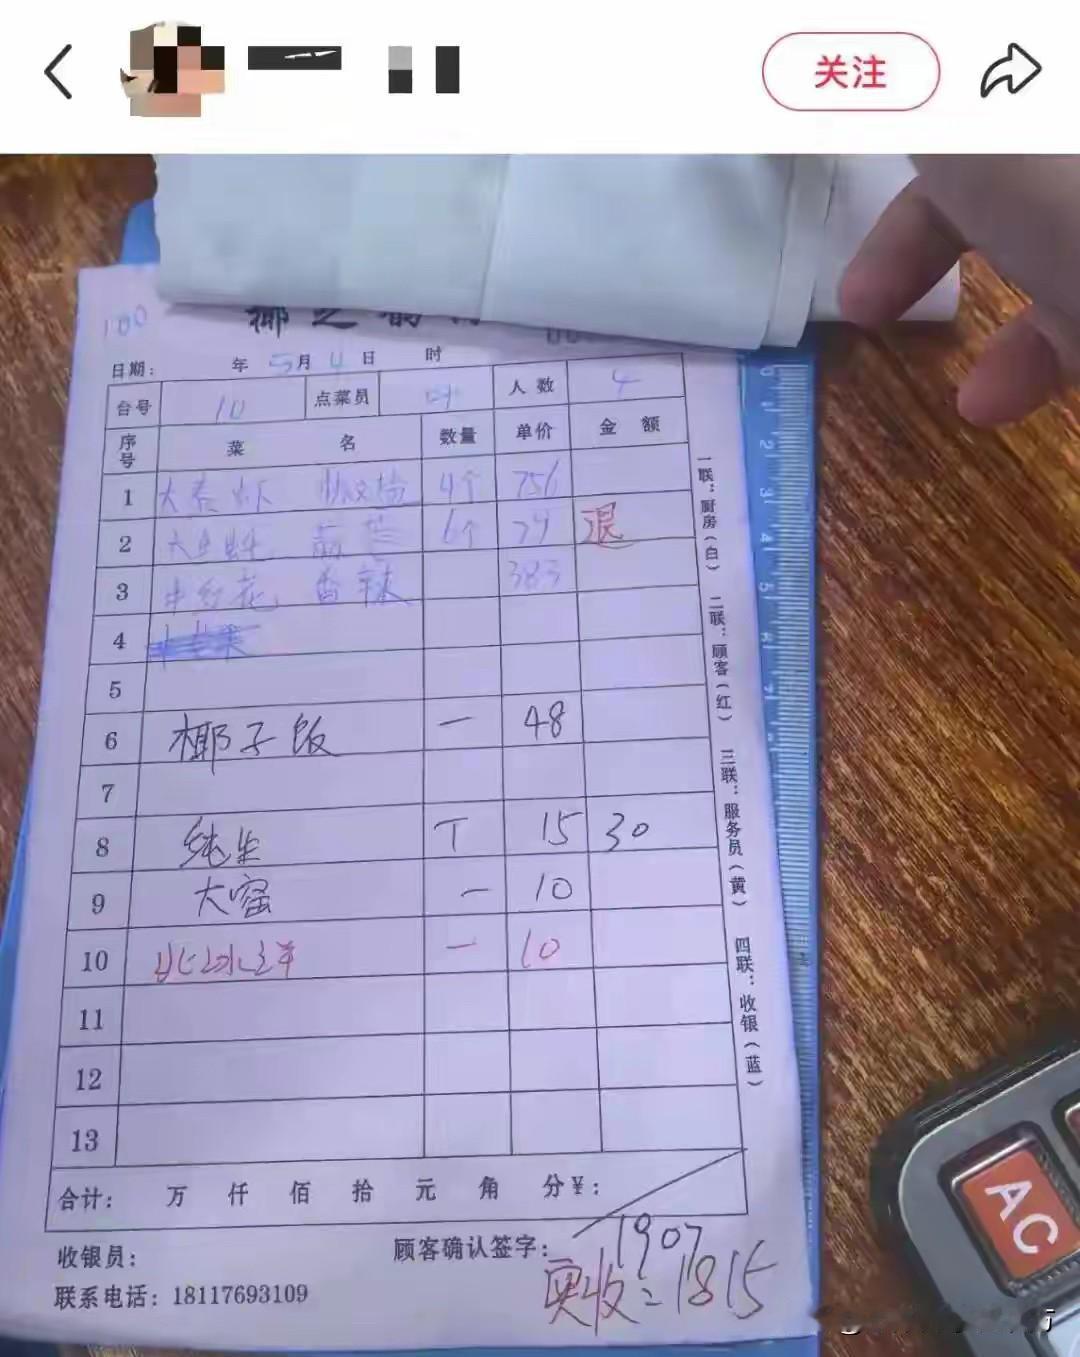 关注
100
椰之韵
日期： 年 5月 4日 时
台号 10 点菜员 叶 人数 4
序号 菜 名 数量 单价 金 额
1 大泰虾 椒盐 4个 756
2 大生蚝 蒜蓉 6个 74 退
3 中红花 香辣 383
4
5
6 椰子饭 一 48
7
8 纯生 T 15 30
9 大窑 一 10
10 北冰洋 一 10
11
12
13
合计： 万 仟 佰 拾 元 角 分￥：
1907
收银员： 顾客确认签字：
实收=1815
联系电话：18117693109
一联：厨房（白） 二联：顾客（红） 三联：服务员（黄） 四联：收银（蓝）
AC